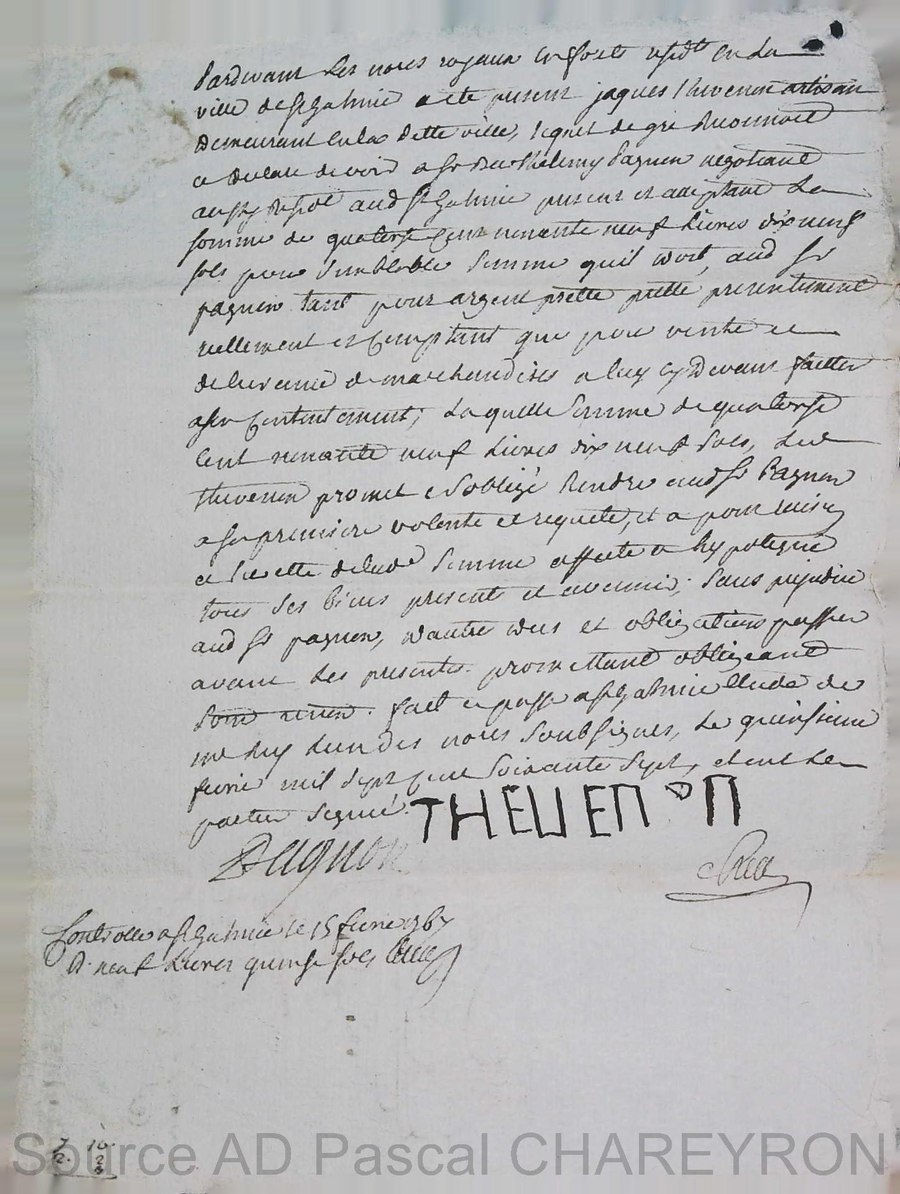 Pardevant Les no.res royaux en forets resid.t en La
ville de St Galmie a ete present jaques thevenon artisan
Demeurant en la Dette ville, Lequel de gré Reconnoit
a Declare devoir a Sr Berthelemy Pagnon negotiant
aussy Resid.t aud St Galmie present et aceptant La
somme de quatorse Cent nonante neuf Livres dix neuf
sols pour Semblable Somme quil doit, aud Sr
pagnon tant pour argent prette presentement
reellement et Comptant que pour vente et
delivrance de marchandises a luy cy Devant faittes
a son Contentement; La quelle Somme de quatorse
Cent nonante neuf Livres dix neuf sols, Led
thevenon promet et S'obligé Rendre aud Sr Pagnon
a sa premiere volonté et requete, et a pour
et Surette de lad.e Somme affecté et hypotequé
tous ses biens present et avenir; Sans prejudice
aud Sr pagnon, d'autre deus et obligations passées
avant Les presentes. promettant obligeant
renon. fait et passe a St Galmie Etude de
me Rey Lun des no.res Soubsignes, Le quinsieme
fevrie mil Sept Cent Soixante Sept, et ont Les
parties signé.
THEUENON
Pagnon
Controlle a St Galmie le 15 fevrie 1767
R. neuf Livres quinse sols
7 10
2. 2
8
Source AD Pascal CHAREYRON